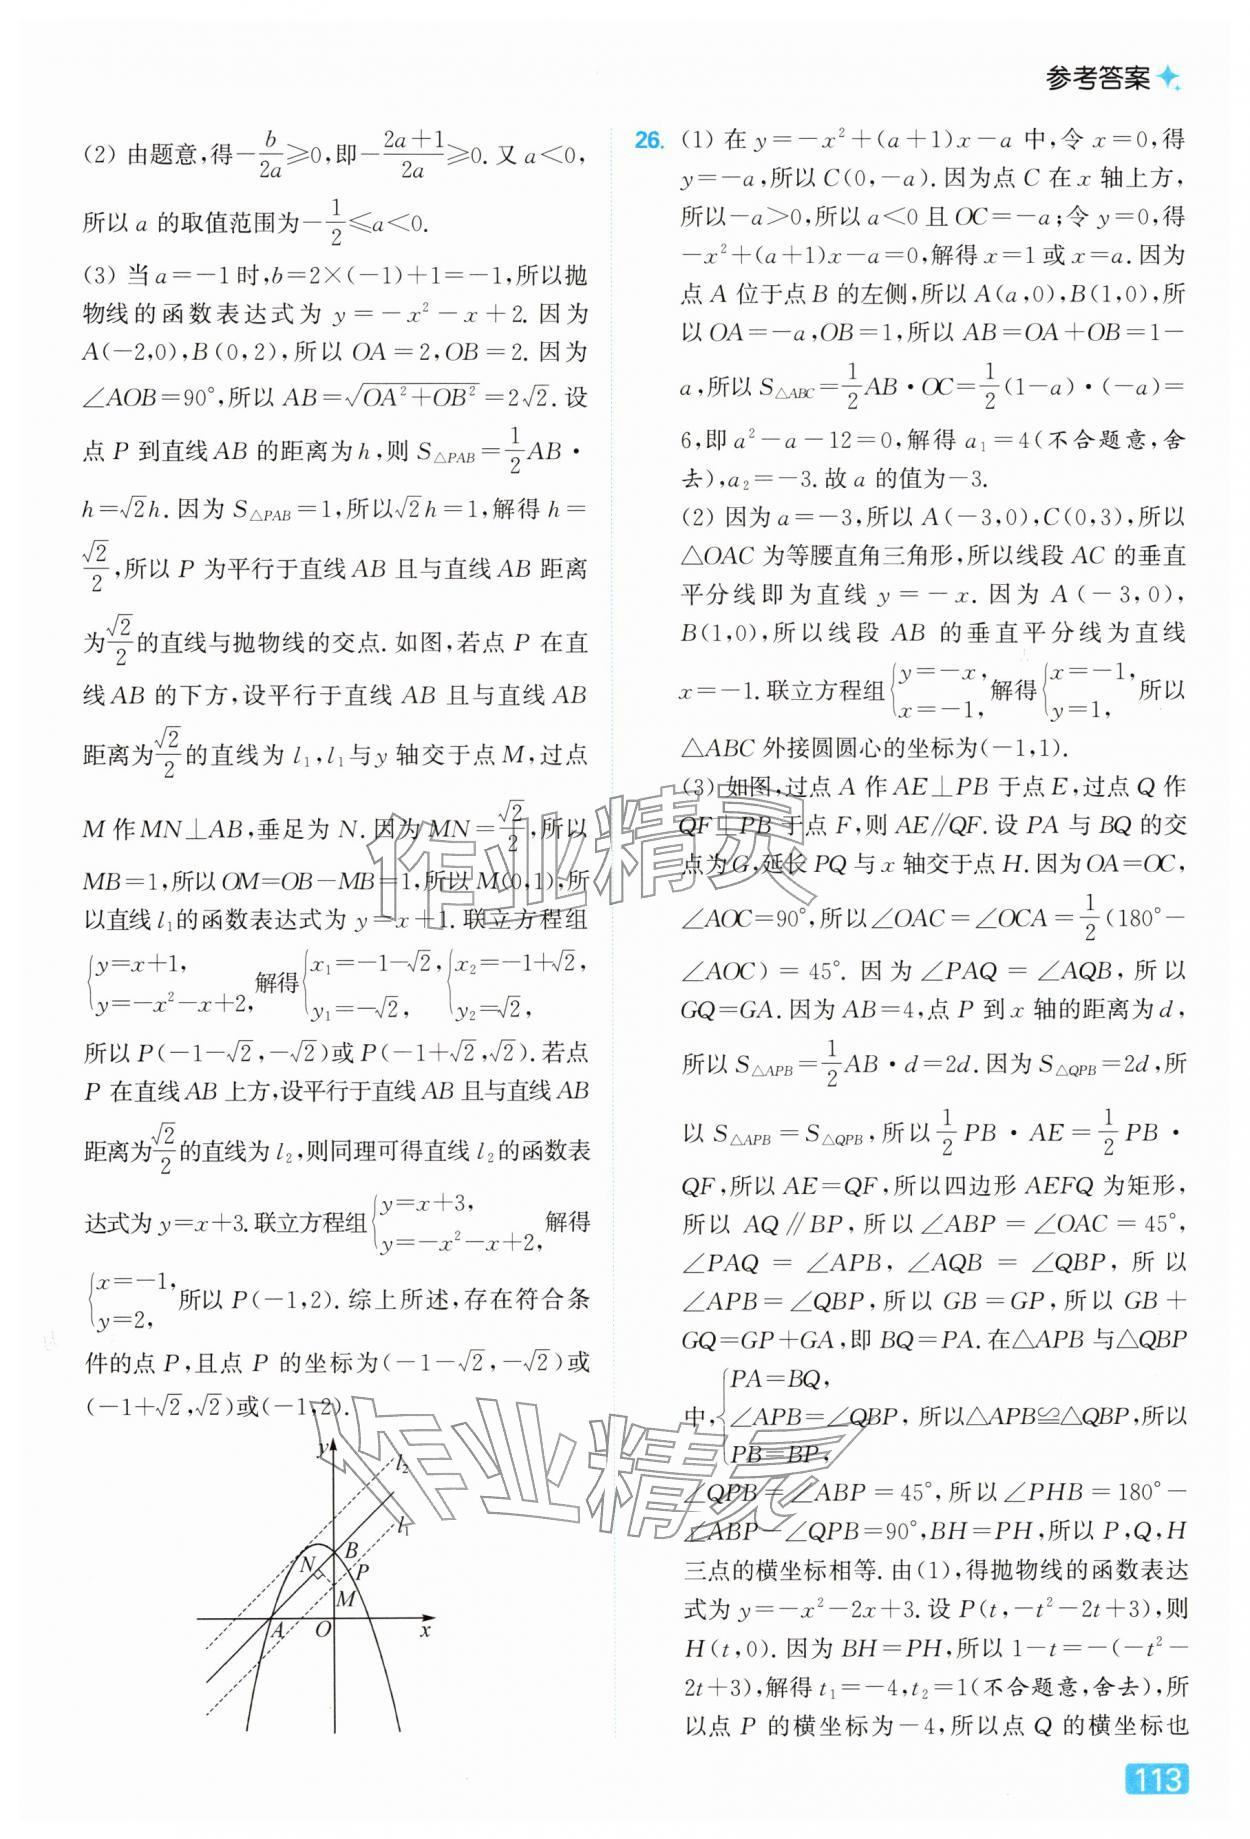 参考答案
(2) 由题意,得-b/2a≥0,即-(2a+1)/2a≥0. 又 a<0,
所以 a 的取值范围为-1/2≤a<0.
(3) 当 a=-1 时,b=2×(-1)+1=-1,所以抛
物线的函数表达式为 y=-x²-x+2. 因为
A(-2,0),B(0,2),所以 OA=2,OB=2. 因为
∠AOB=90°,所以 AB=√(OA²+OB²)=2√2. 设
点 P 到直线 AB 的距离为 h,则 S△PAB=1/2AB·
h=√2h. 因为 S△PAB=1,所以√2h=1,解得 h=
√2/2,所以 P 为平行于直线 AB 且与直线 AB 距离
为√2/2的直线与抛物线的交点. 如图,若点 P 在直
线 AB 的下方,设平行于直线 AB 且与直线 AB
距离为√2/2的直线为 l₁,l₁与 y 轴交于点 M,过点
M 作 MN⊥AB,垂足为 N. 因为 MN=√2/2,所以
MB=1,所以 OM=OB-MB=1,所以 M(0,1),所
以直线 l₁的函数表达式为 y=x+1. 联立方程组
{y=x+1, y=-x²-x+2, 解得{x₁=-1-√2, y₁=-√2, {x₂=-1+√2, y₂=√2,
所以 P(-1-√2,-√2)或 P(-1+√2,√2). 若点
P 在直线 AB 上方,设平行于直线 AB 且与直线 AB
距离为√2/2的直线为 l₂,则同理可得直线 l₂的函数表
达式为 y=x+3. 联立方程组{y=x+3, y=-x²-x+2, 解得
{x=-1, y=2, 所以 P(-1,2). 综上所述,存在符合条
件的点 P,且点 P 的坐标为(-1-√2,-√2)或
(-1+√2,√2)或(-1,2).
y
l₂
l₁
B
N
P
M
A
O
x
26. (1) 在 y=-x²+(a+1)x-a 中,令 x=0,得
y=-a,所以 C(0,-a). 因为点 C 在 x 轴上方,
所以-a>0,所以 a<0 且 OC=-a;令 y=0,得
-x²+(a+1)x-a=0,解得 x=1 或 x=a. 因为
点 A 位于点 B 的左侧,所以 A(a,0),B(1,0),所
以 OA=-a,OB=1,所以 AB=OA+OB=1-
a,所以 S△ABC=1/2AB·OC=1/2(1-a)·(-a)=
6,即 a²-a-12=0,解得 a₁=4(不合题意,舍
去),a₂=-3. 故 a 的值为-3.
(2) 因为 a=-3,所以 A(-3,0),C(0,3),所以
△OAC 为等腰直角三角形,所以线段 AC 的垂直
平分线即为直线 y=-x. 因为 A(-3,0),
B(1,0),所以线段 AB 的垂直平分线为直线
x=-1. 联立方程组{y=-x, x=-1, 解得{x=-1, y=1, 所以
△ABC 外接圆圆心的坐标为(-1,1).
(3) 如图,过点 A 作 AE⊥PB 于点 E,过点 Q 作
QF⊥PB 于点 F,则 AE∥QF. 设 PA 与 BQ 的交
点为 G,延长 PQ 与 x 轴交于点 H. 因为 OA=OC,
∠AOC=90°,所以∠OAC=∠OCA=1/2(180°-
∠AOC)=45°. 因为∠PAQ=∠AQB,所以
GQ=GA. 因为 AB=4,点 P 到 x 轴的距离为 d,
所以 S△APB=1/2AB·d=2d. 因为 S△QPB=2d,所
以 S△APB=S△QPB,所以1/2PB·AE=1/2PB·
QF,所以 AE=QF,所以四边形 AEFQ 为矩形,
所以 AQ∥BP,所以∠ABP=∠OAC=45°,
∠PAQ=∠APB,∠AQB=∠QBP,所以
∠APB=∠QBP,所以 GB=GP,所以 GB+
GQ=GP+GA,即 BQ=PA. 在△APB 与△QBP
中,{PA=BQ, ∠APB=∠QBP, PB=BP, 所以△APB≌△QBP,所以
∠QPB=∠ABP=45°,所以∠PHB=180°-
∠ABP-∠QPB=90°,BH=PH,所以 P,Q,H
三点的横坐标相等. 由(1),得抛物线的函数表达
式为 y=-x²-2x+3. 设 P(t,-t²-2t+3),则
H(t,0). 因为 BH=PH,所以 1-t=-(-t²-
2t+3),解得 t₁=-4,t₂=1(不合题意,舍去),所
以点 P 的横坐标为-4,所以点 Q 的横坐标也
113
作业精灵
作业精灵